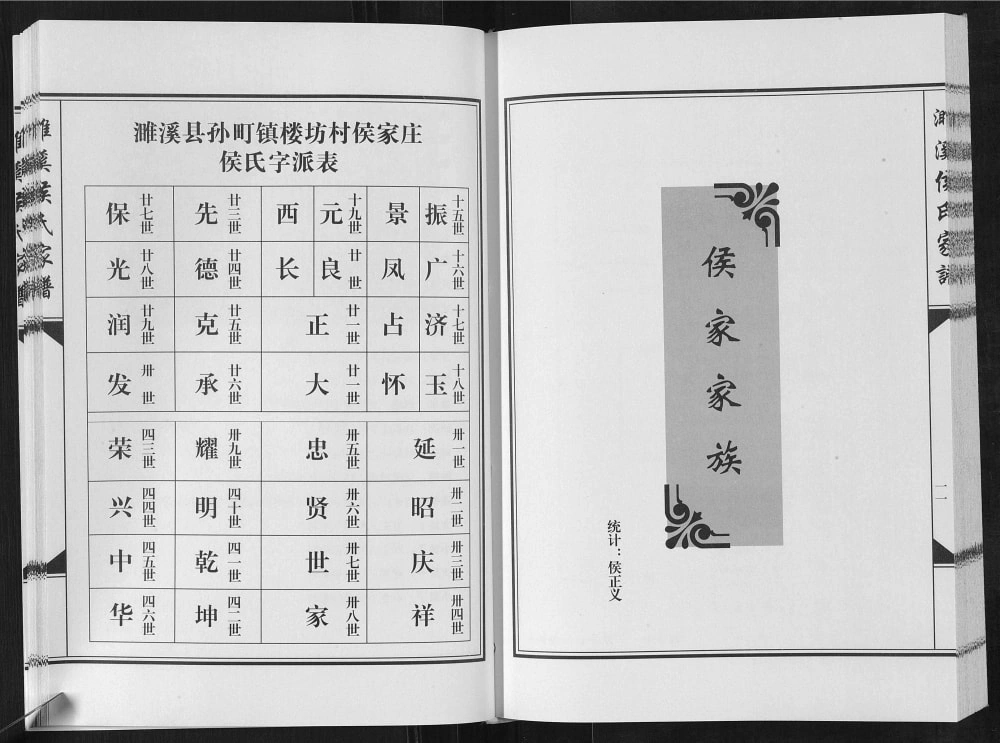 濉溪县孙町镇楼坊村侯家庄
侯氏字派表
十五世 振 景
十六世 广 凤
十七世 济 占
十八世 玉 怀
十九世 元 西
廿世 良 长
廿一世 正
廿一世 大
廿三世 先
廿四世 德
廿五世 克
廿六世 承
廿七世 保
廿八世 光
廿九世 润
卅世 发
卅一世 延
卅二世 昭
卅三世 庆
卅四世 祥
卅五世 忠
卅六世 贤
卅七世 世
卅八世 家
卅九世 耀
四十世 明
四一世 乾
四二世 坤
四三世 荣
四四世 兴
四五世 中
四六世 华
濉溪侯氏家谱
侯家家族
统计：侯正义
濉溪侯氏家谱
二一